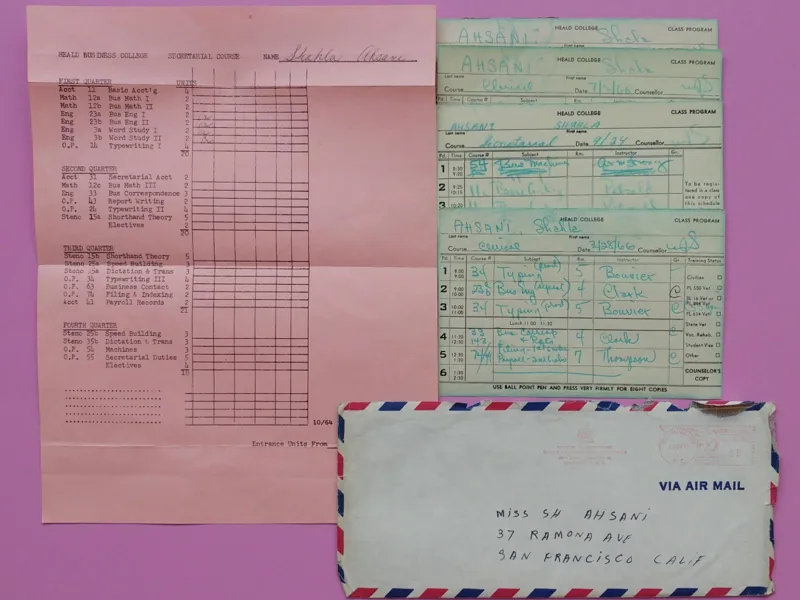 HEALD BUSINESS COLLEGE SECRETARIAL COURSE NAME Shahla Ahsani
FIRST QUARTER UNITS
Acct 11 Basic Acct'g 4
Math 12a Bus Math I 2
Math 12b Bus Math II 2
Eng 23a Bus Eng I 2
Eng 23b Bus Eng II 2
Eng 3a Word Study I 2
Eng 3b Word Study II 2
O.P. 14 Typewriting I 4
20
SECOND QUARTER
Acct 31 Secretarial Acct 2
Math 12c Bus Math III 2
Eng 33 Bus Correspondence 3
O.P. 43 Report Writing 2
O.P. 24 Typewriting II 4
Steno 15a Shorthand Theory 5
Electives 2
20
THIRD QUARTER
Steno 15b Shorthand Theory 5
Steno 25a Speed Building 3
Steno 35a Dictation & Trans 3
O.P. 34 Typewriting III 4
O.P. 63 Business Contact 2
O.P. 74 Filing & Indexing 2
Acct 41 Payroll Records 2
21
FOURTH QUARTER
Steno 25b Speed Building 3
Steno 35b Dictation & Trans 3
O.P. 54 Machines 3
O.P. 55 Secretarial Duties 5
Electives 4
18
10/64
Entrance Units From
AHSANI, Shahla
HEALD COLLEGE CLASS PROGRAM
First name
HEALD COLLEGE CLASS PROGRAM
AHSANI, Shahla
Last name First name
Course Clerical Date Counsellor
Pd. Time Course # Subject Rm. Instructor Gr.
HEALD COLLEGE CLASS PROGRAM
AHSANI SHAHLA
Last name First name
Course Secretarial Date 9/24 Counsellor
Pd. Time Course # Subject Rm. Instructor Gr.
1 54 Bus Machines Armstrong
2
To be registered in a class
one copy of this schedule
3
HEALD COLLEGE CLASS PROGRAM
AHSANI, Shahla
Last name First name
Course Clerical Date 3/28/66 Counsellor
Pd. Time Course # Subject Rm. Instructor Gr. Training Status
1 8:00 9:00 34 Typing (prod) 5 Bouvier Civilian
2 9:00 10:00 23b Bus Eng (repeat) 4 Clark C PL 550 Vet
3 10:00 11:00 34 Typing (prod) 5 Bouvier C
Lunch 11:00 - 11:30 State Vet
4 11:30 12:30 33 Bus Corresp 4 Clark Voc. Rehab.
Student Visa
5 12:30 1:30 Filing 7 Thompson C Other
6 1:30 2:30 COUNSELOR'S COPY
USE BALL POINT PEN AND PRESS VERY FIRMLY FOR EIGHT COPIES
VIA AIR MAIL
MISS SH AHSANI
37 RAMONA AVE
SAN FRANCISCO CALIF